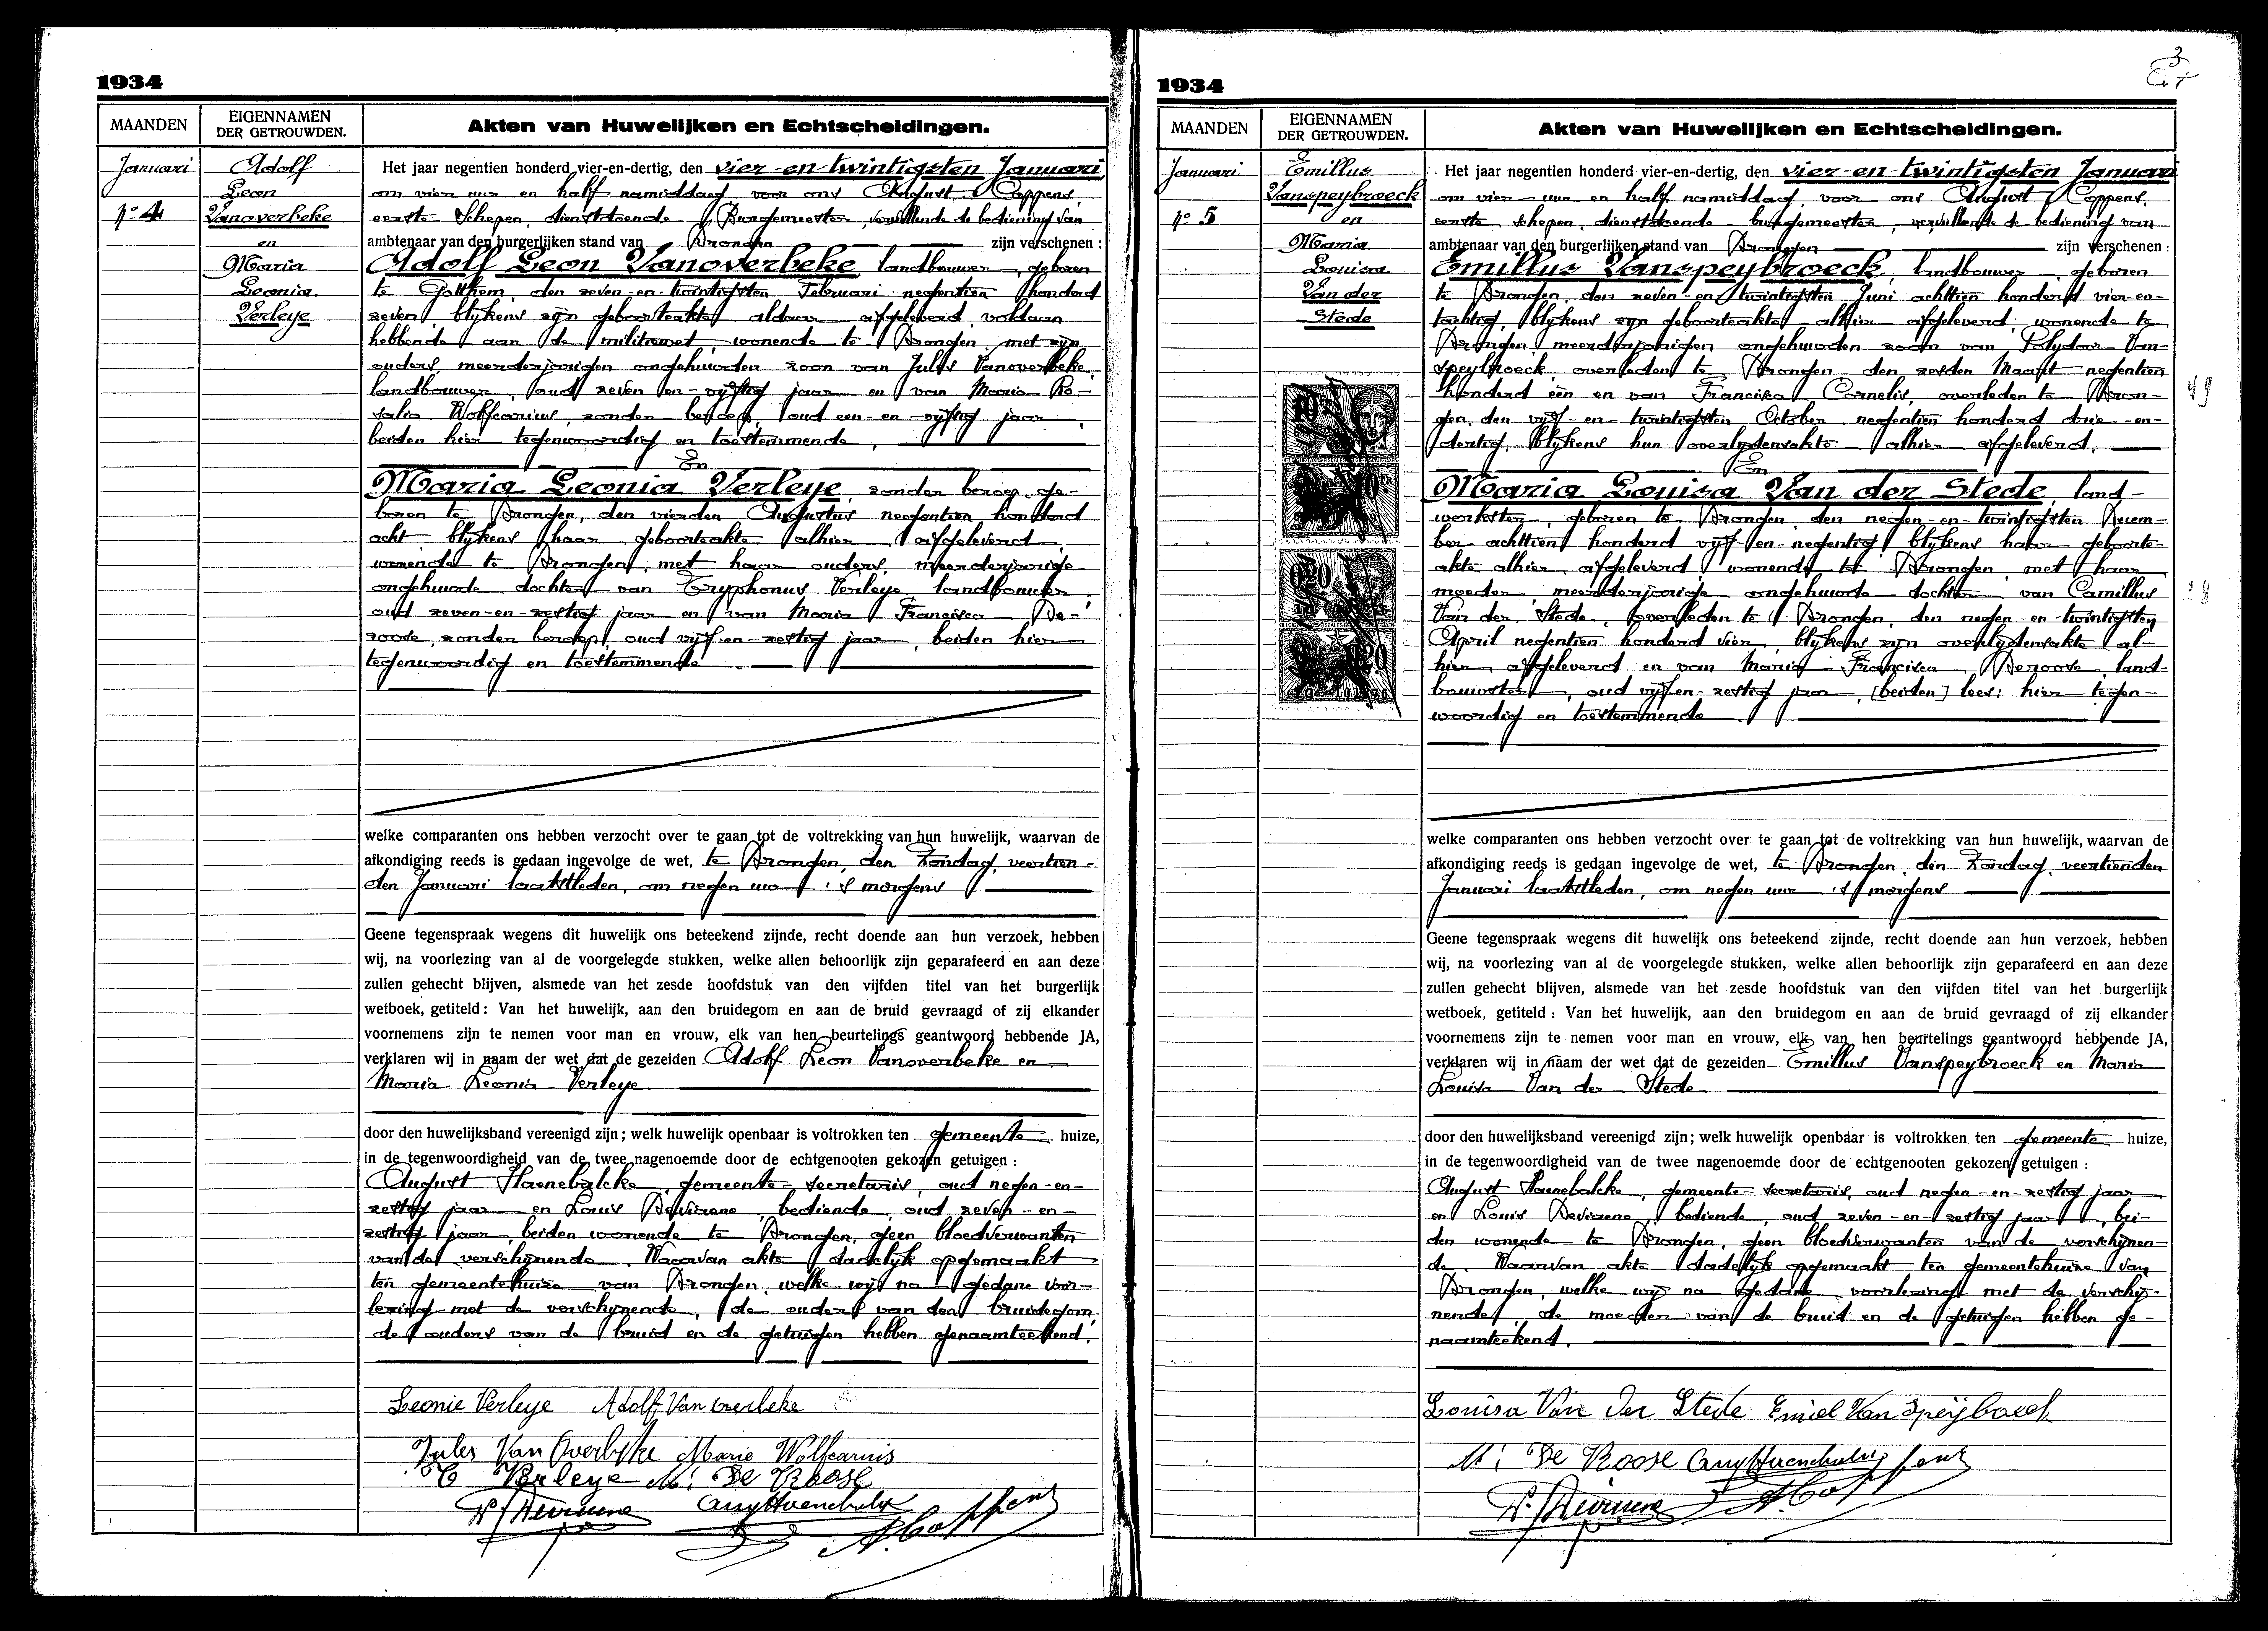 1934
MAANDEN
EIGENNAMEN
DER GETROUWDEN.
Akten van Huwelijken en Echtscheidingen.
Januari
No 4
Adolf
Leon
Vanoverbeke
en
Maria
Leonia
Verleye
Het jaar negentien honderd vier-en-dertig, den vier-en-twintigsten Januari,
om vier uur en half namiddag voor ons August Coppens,
eerste Schepen, dienstdoende Burgemeester, vervullende de bediening van
ambtenaar van den burgerlijken stand van Drongen zijn verschenen :
Adolf Leon Vanoverbeke, landbouwer, geboren
te Gotthem, den zeven-en-twintigsten Februari negentien honderd
zeven, blykens zyn geboorteakte aldaar afgeleverd, voldaan
hebbende aan de militiewet, wonende te Drongen, met zyn
ouders, meerderjarigen ongehuwden zoon van Julus Vanoverbeke,
landbouwer, oud zeven-en-vyftig jaar en van Maria Ro-
salia Wolfcarius, zonder beroep, oud een-en-vyftig jaar,
beiden hier tegenwoordig en toestemmende,
En
Maria Leonia Verleye, zonder beroep, ge-
boren te Drongen, den vierden Augustus negentien honderd
acht blykens haar geboorteakte alhier afgeleverd,
wonende te Drongen, met haar ouders, meerderjarige
ongehuwde dochter van Tryphonus Verleye, landbouwer,
oud zeven-en-zestig jaar en van Maria Francisca De-
roose, zonder beroep, oud vyf-en-zestig jaar, beiden hier
tegenwoordig en toestemmende
welke comparanten ons hebben verzocht over te gaan tot de voltrekking van hun huwelijk, waarvan de
afkondiging reeds is gedaan ingevolge de wet, te Drongen, den Zondag, veertien-
den Januari laatstleden, om negen uur 's morgens
Geene tegenspraak wegens dit huwelijk ons beteekend zijnde, recht doende aan hun verzoek, hebben
wij, na voorlezing van al de voorgelegde stukken, welke allen behoorlijk zijn geparafeerd en aan deze
zullen gehecht blijven, alsmede van het zesde hoofdstuk van den vijfden titel van het burgerlijk
wetboek, getiteld : Van het huwelijk, aan den bruidegom en aan de bruid gevraagd of zij elkander
voornemens zijn te nemen voor man en vrouw, elk van hen beurtelings geantwoord hebbende JA,
verklaren wij in naam der wet dat de gezeiden Adolf Leon Vanoverbeke en
Maria Leonia Verleye
door den huwelijksband vereenigd zijn; welk huwelijk openbaar is voltrokken ten gemeente huize,
in de tegenwoordigheid van de twee nagenoemde door de echtgenooten gekozen getuigen :
August Haenebalcke, gemeente-secretaris, oud negen-en-
zestig jaar en Louis Deviaene, bediende, oud zeven-en-
zestig jaar, beiden wonende te Drongen, geen bloedverwanten
van de verschynende. Waarvan akte dadelyk opgemaakt
ten gemeentehuize van Drongen, welke wy na gedane voor-
lezing met de verschynende, de ouders van den bruidegom,
de ouders van de bruid en de getuigen hebben genaamteekend.
Leonie Verleye Adolf Van overbeke
Jules Van Overbeke Marie Wolfcarius
T Verleye M. De Roose
A. Coppens
1934
3
MAANDEN
EIGENNAMEN
DER GETROUWDEN.
Akten van Huwelijken en Echtscheidingen.
Januari
No 5
Emillus
Vanspeybroeck
en
Maria
Louisa
Van der
Stede
Het jaar negentien honderd vier-en-dertig, den vier-en-twintigsten Januari
om vier uur en half namiddag, voor ons August Coppens,
eerste schepen, dienstdoende burgemeester, vervullende de bediening van
ambtenaar van den burgerlijken stand van Drongen zijn verschenen :
Emillus Vanspeybroeck, landbouwer, geboren
te Drongen, den zeven-en-twintigsten Juni achttien honderd vier-en-
tachtig, blykens zyn geboorteakte alhier afgeleverd, wonende te
Drongen, meerderjarigen ongehuwden zoon van Polydoor Van-
speybroeck overleden te Drongen, den zesden Maart negentien
honderd één en van Francisca Cornelis, overleden te Dron-
gen, den vyf-en-twintigsten October negentien honderd drie-en-
dertig, blykens hun overlydensakte alhier afgeleverd.
En
Maria Louisa Van der Stede, land-
werkster, geboren te Drongen, den negen-en-twintigsten Decem-
ber achttien honderd vyf-en-negentig, blykens haar geboorte-
akte alhier afgeleverd, wonende te Drongen, met haar
moeder, meerderjarige ongehuwde dochter van Camillus
Van der Stede, overleden te Drongen, den negen-en-twintigsten
April negentien honderd vier, blykens zyn overlydensakte al-
hier afgeleverd en van Maria Francisca Deroose, land-
bouwster, oud vyf-en-zestig jaar, [beiden] lees: hier tegen-
woordig en toestemmende
49
welke comparanten ons hebben verzocht over te gaan tot de voltrekking van hun huwelijk, waarvan de
afkondiging reeds is gedaan ingevolge de wet, te Drongen, den Zondag, veertienden
Januari laatstleden, om negen uur 's morgens
Geene tegenspraak wegens dit huwelijk ons beteekend zijnde, recht doende aan hun verzoek, hebben
wij, na voorlezing van al de voorgelegde stukken, welke allen behoorlijk zijn geparafeerd en aan deze
zullen gehecht blijven, alsmede van het zesde hoofdstuk van den vijfden titel van het burgerlijk
wetboek, getiteld : Van het huwelijk, aan den bruidegom en aan de bruid gevraagd of zij elkander
voornemens zijn te nemen voor man en vrouw, elk van hen beurtelings geantwoord hebbende JA,
verklaren wij in naam der wet dat de gezeiden Emillus Vanspeybroeck en Maria
Louisa Van der Stede
door den huwelijksband vereenigd zijn; welk huwelijk openbaar is voltrokken ten gemeente huize,
in de tegenwoordigheid van de twee nagenoemde door de echtgenooten gekozen getuigen :
August Haenebalcke, gemeente-secretaris, oud negen-en-zestig jaar
en Louis Deviaene, bediende, oud zeven-en-zestig jaar, bei-
den wonende te Drongen, geen bloedverwanten van de verschynen-
de. Waarvan akte dadelyk opgemaakt ten gemeentehuize van
Drongen, welke wy na gedane voorlezing met de verschy-
nende, de moeder van de bruid en de getuigen hebben ge-
naamteekend.
Louisa Van Der Stede Emiel Van Speijbroeck
M. De Roose
A. Coppens